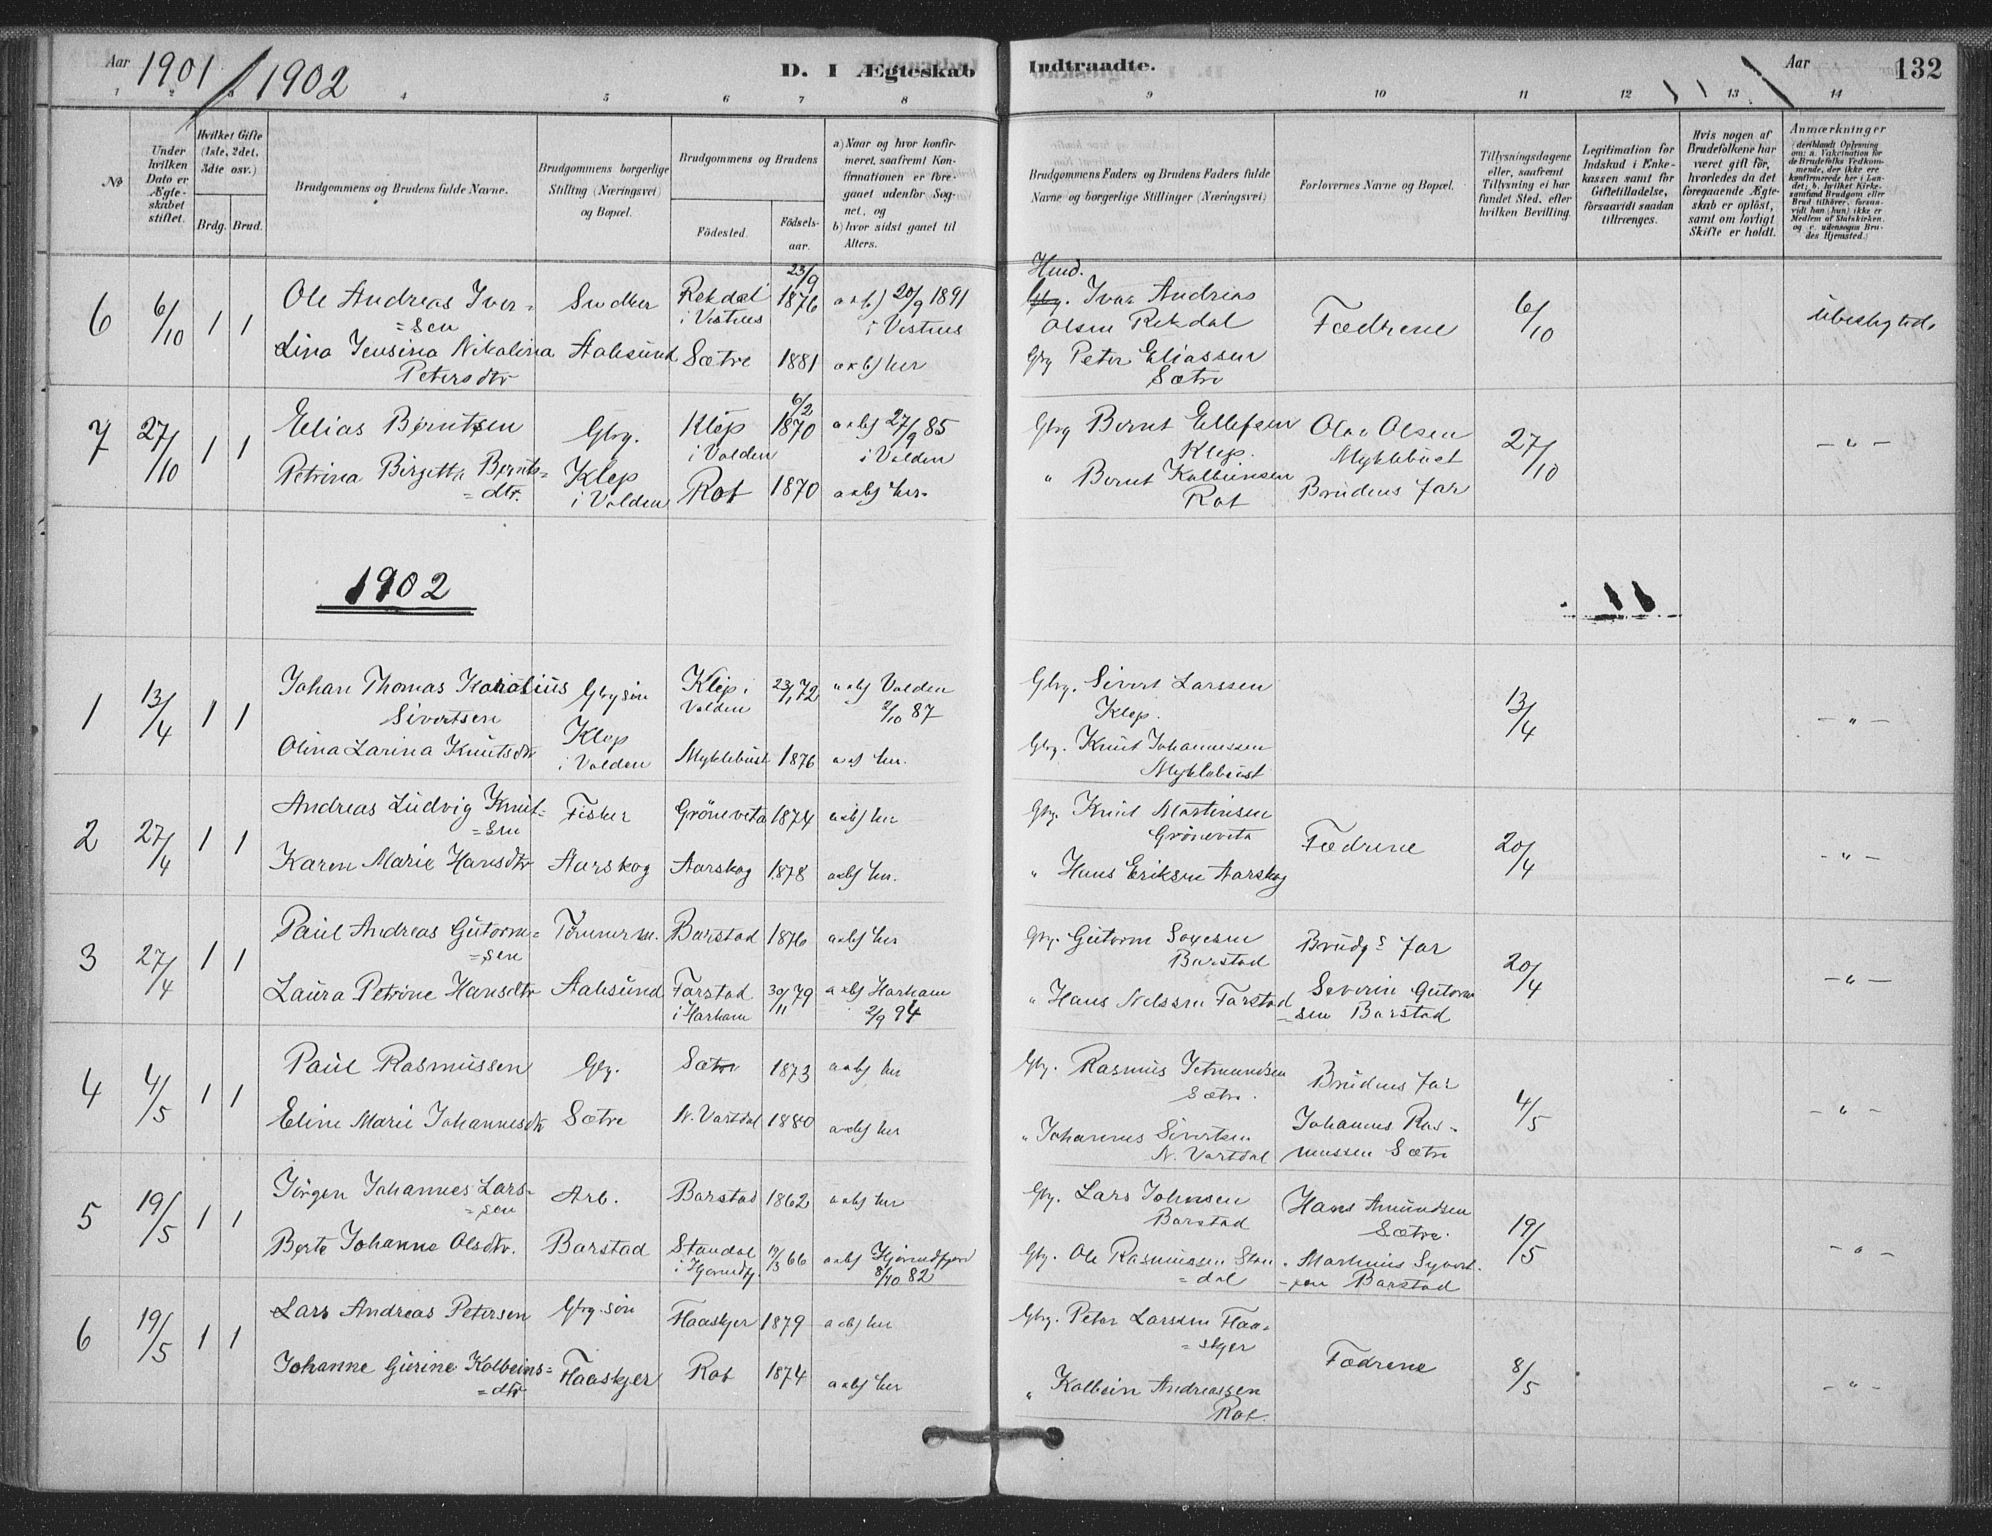 Aar 1901 / 1902
D. I Ægteskab Indtraadte.
Aar 132
1 2 3 4 5 6 7 8 9 10 11 12 13 14
No
Under hvilken Dato er Ægteskabet stiftet.
Hvilket Gifte (1ste, 2det, 3die osv.)
Brdg. Brud.
Brudgommens og Brudens fulde Navne.
Brudgommens borgerlige Stilling (Næringsvei) og Bopæl.
Brudgommens og Brudens
Födested.
Födsels-aar.
a) Naar og hvor konfirmeret, saafremt Konfirmationen er foregaaet udenfor Sognet, og
b) hvor sidst gaaet til Alters.
Brudgommens Faders og Brudens Faders fulde Navne og borgerlige Stillinger (Næringsvei)
Forlovernes Navne og Bopæl.
Tillysningsdagene eller, saafremt Tillysning ei har fundet Sted, efter hvilken Bevilling.
Legitimation for Indskud i Enkekassen samt for Giftetilladelse, forsaavidt saadan tiltrænges.
Hvis nogen af Brudefolkene har været gift för, hvorledes da det foregaaende Ægteskab er oplöst, samt om lovligt Skifte er holdt.
Anmærkninger (deriblandt Oplysning om: a. Vakcination for de Brudefolks Vedkommende, der ikke ere konfirmerede her i Landet; b. hvilket Kirkesamfund Brudgom eller Brud tilhörer, forsaavidt han (hun) ikke er Medlem af Statskirken, og c. udensogns Brudes Hjemsted.)
6 6/10 1 1
Ole Andreas Iver=
=sen
Snedker
Rekdal i Vestnes
23/9 1876
a&b) 20/9 1891 i Vestnes
Husd.
Ivar Andreas
Olsen Rekdal
Fædrene
6/10
ubeslegtede
Lina Jensina Nikolina
Petersdtr
Aalesund
Sætre 1881 a&b) her
Gbr Peter Eliassen
Sætre
7 27/10 1 1
Elias Berntsen
Gbr.
Klep i Volden
6/2 1870
a&b) 27/9 85 i Volden
Gbr Bernt Ellefsen
Klep.
Olav Olsen
Myklebust
27/10
– " –
Petrina Birgitta Bernts=
=dtr.
Klep
i Volden
Rot 1870 a&b) her.
" Bernt Kolbeinsen
Rot
Brudens far
1902
1 13/4 1 1
Johan Thomas Kornelius
Sivertsen
Gbr søn
Klep i Volden
23/1 72
a&b) Volden 2/10 87
Gbr. Sivert Larssen
Klep.
13/4
– " –
Olina Larina Knutsdtr
Klep
i Volden
Myklebust 1876 a&b) her.
Gbr. Knut Johannessen
Myklebust
2 27/4 1 1
Andreas Ludvig Knut=
=sen
Fisker
Gröneveta 1874 a&b) her
Gbr. Knut Martinsen
Grøneveta
Fædrene
20/4
– " –
Karen Marie Hansdtr
Aarskog
Aarskog 1878 a&b) her.
" Hans Eriksen Aarskog
3 27/4 1 1
Paul Andreas Gutorm=
=sen
Tømmerm.
Barstad 1876 a&b) her
Gbr. Gutorm
Barstad
Brudg s far
20/4
– " –
Laura Petrine Hansdtr
Aalesund
Farstad
i Harham
30/11 79
a&b) Harham 2/9 94
" Hans Nelssen Farstad
Severin Gutorm
=sen Barstad
4 4/5 1 1
Paul Rasmussen
Gbr.
Sætre 1873 a&b) her
Gbr. Rasmus Jetmundsen
Sætre.
Brudens far
4/5
– " –
Eline Marie Johannesdtr
Sætre
N. Vartdal 1880 a&b) her
" Johannes Sivertsen
N. Vartdal
Johannes Ras=
mussen Sætre
5 19/5 1 1
Jörgen Johannes Lars=
=sen
Arb.
Barstad 1862 a&b) her
Gbr. Lars Johnsen
Barstad
Hans Amundsen
Sætre.
19/5
– " –
Berte Johanne Olsdtr.
Barstad
Standal
i Hjørundfj.
66
a&b) Hjørundfjord
8/10 82
Gbr. Ole Rasmussen Stan
=dal
Martinus Syvert=
=sen Barstad
6 19/5 1 1
Lars Andreas Petersen
Gbr. søn
Flaaskjer 1879 a&b) her
Gbr. Peter Larssen Flaa=
=skjer
Fædrene
8/5
– " –
Johanne Gurine Kolbeins=
=dtr
Flaaskjer
Rot 1874 a&b) her
" Kolbein Andreassen
Rot.